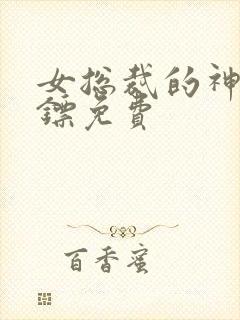 女总裁的神
镖免费
百香蜜